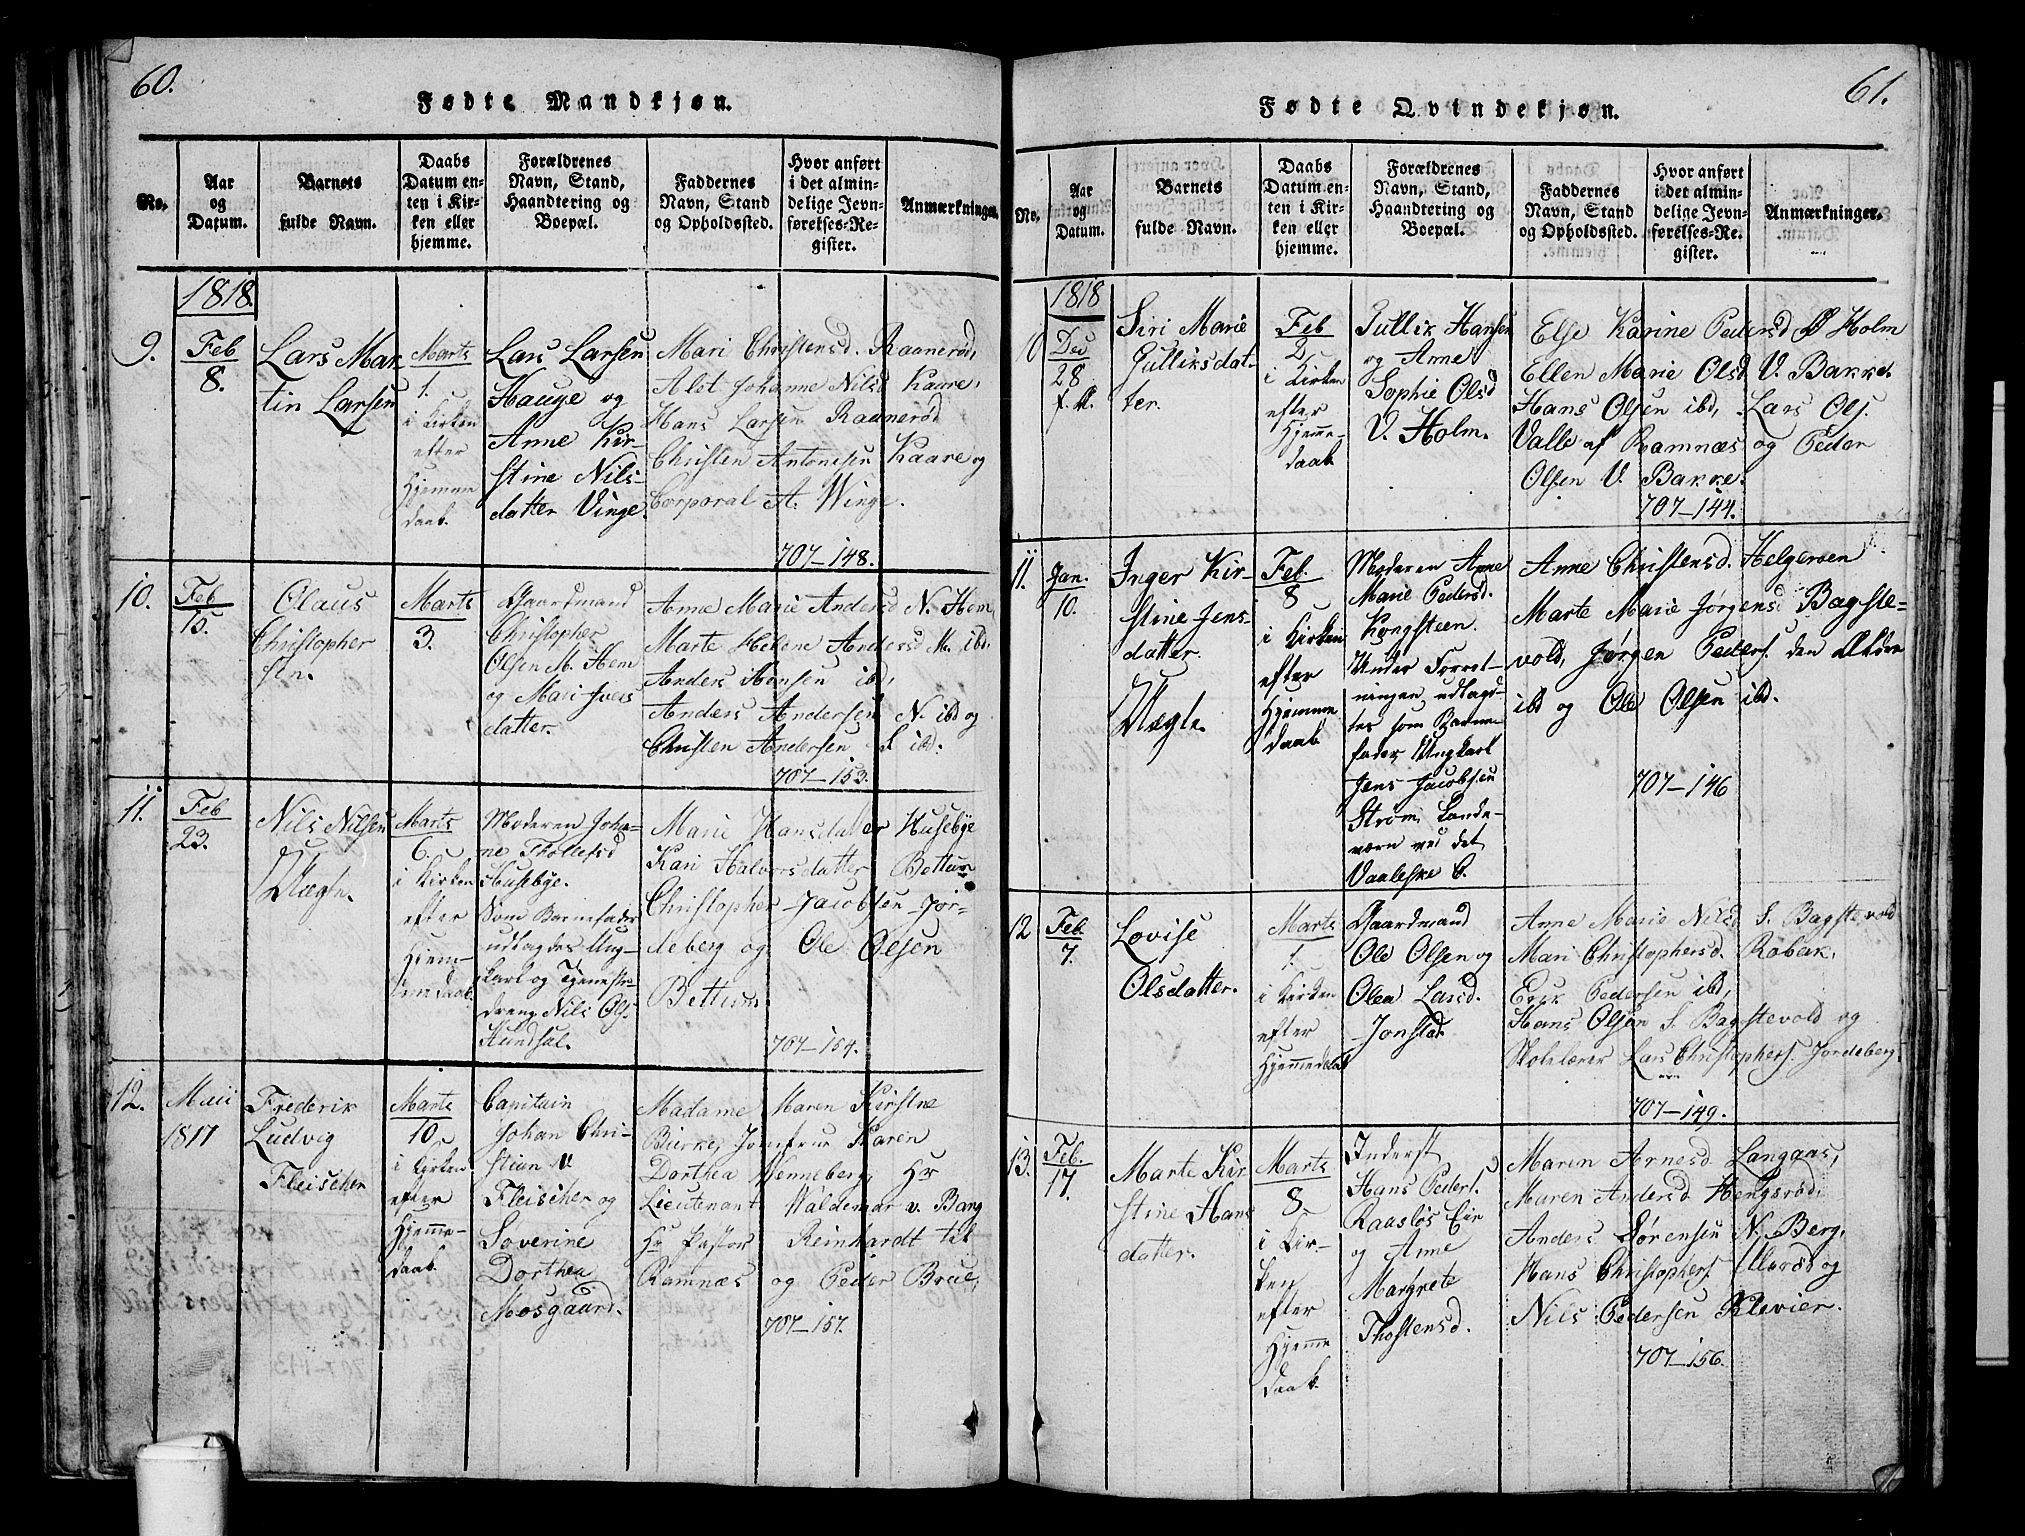 60.
Fødte Mandkjøn.
No.
Aar
og
Datum.
Barnets
fulde Navn.
Daabs
Datum en-
ten i Kir-
ken eller
hjemme.
Forældrenes
Navn, Stand,
Haandtering og
Boepæl.
Faddernes
Navn, Stand
og Opholdssted.
Hvor anført
i det almin-
delige Jevn-
førelses-Re-
gister.
Anmærkninger.
1818.
9.
Feb
8.
Lars Mar
tin Larsen
Marts
1.
i Kirken
efter
Hjemme
daab.
Lars Larsen
Hauge og
Anne Kir-
stine Nils-
datter Vinge.
Mari Christensd. Raanerød,
Alet Johanne Nilsd Kaare,
Hans Larsen Raanerød
Christen Antonisen Kaare og
Corporal A. Winge.
707-148.
10.
Feb
15.
Olaus
Christopher
sen.
Marts
3.
Gaardmand
Christopher
Olsen M. Hem
og Mari Ivers
datter.
Anne Marie Andersd N. Hem,
Marte Helene Andersd M. ibd,
Anders Hansen ibd,
Anders Andersen N. ibd og
Christen Andersen S ibd.
707-153.
11.
Feb
23.
Nils Nilsen
Uægte.
Marts
6.
i Kirken
efter
Hjem-
medaab.
Moderen Joha-
ne Thollefsd
Husebye.
Som Barnefader
udlagdes Ung-
karl og Tjeneste
dreng Nils Ols.
Hundsal.
Marie Hansdatter Husebye
Kari Halvorsdatter Bettum
Christopher Jacobsen Jor-
deberg og Ole Olsen
Bettum.
707-154.
12.
Maii
1817
Frederik
Ludvig
Fleischer
Marts
10
i Kirken
efter
Hjemme-
daab.
Capitain
Johan Chri-
stian v
Fleischer og
Soverine
Dorthea
Mosgaard.
Madame Maren Kirstne
Bierke, Jomfrue Karen
Dorthea Wenneberg, Hr
Lieutenant Waldemar v. Bang
Hr Pastor Reinhardt til
Ramnæs og Peder Brue,
707-157.
61.
Fødte Qvindekjøn.
No.
Aar
og
Datum.
Barnets
fulde Navn.
Daabs
Datum en-
ten i Kir-
ken eller
hjemme.
Forældrenes
Navn, Stand,
Haandtering og
Boepæl.
Faddernes
Navn, Stand
og Opholdssted.
Hvor anført
i det almin-
delige Jevn-
førelses-Re-
gister.
Anmærkninger.
1818
10
Dec
28
f. A.
Siri Marie
Gulliksdat-
ter.
Feb
2
i Kirken
efter
Hjemme-
daab.
Gullik Hansen
og Anne
Sophie Olsd
V. Holm.
Else Karine Pedersd Ø Holm
Ellen Marie Olsd V. Bakke.
Hans Olsen ibd, Lars Ols.
Valle af Ramnæs og Peder
Olsen V. Bakke.
707-144.
11.
Jan.
10.
Inger Kir-
stine Jens-
datter.
Uægte.
Feb.
8
i Kirken
efter
Hjemme
daab
Moderen Anne
Marie Pedersd.
Kongsteen.
Under Forret-
ningen udlagd-
tes som Barne
fader Ungkarl
Jens Jacobsen
Strøm Lande-
værn ved det
Vaaleske C.
Anne Christensd. Helgeroen
Marte Marie Jørgensd Bagste-
vold, Jørgen Peders. den Ældre
ibd og Ole Olsen ibd.
707-146
12
Feb
7.
Lovise
Olsdatter.
Marts
1.
i Kirken
efter
Hjemmedab
Gaardmand
Ole Olsen og
Olea Larsd.
Jonstad.
Anne Marie Nilsd S. Bagstevold
Mari Christophersd. Robak,
Erik Pedersen ibd,
Hans Olsen S. Bagstevold og
Skolelærer Lars Christophers. Jordeberg.
707-149.
13.
Feb.
17.
Marte Kir
stine Hans
datter.
Marts
8
i Kir-
ken
efter
Hjemme
daab.
Inderst
Hans Peders.
Raasløs Eie
og Anne
Margrete
Thostensd.
Maren Arnesd. Langaas,
Maren Andersd Hengsrød,
Anders Sørensen N. Berg,
Hans Christophers. Ullerød og
Nils Pedersen Klevier.
707-156.